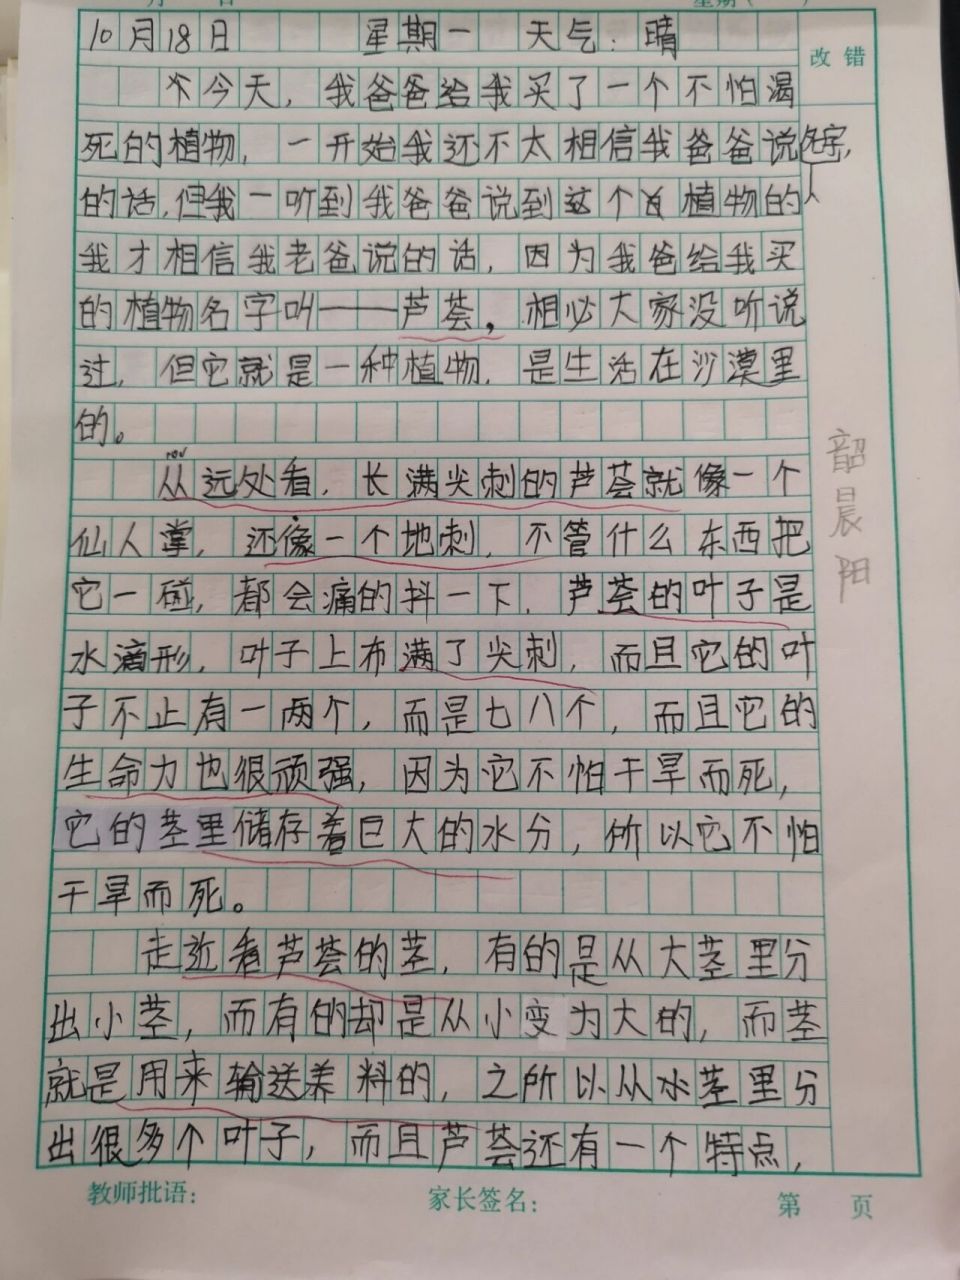 10月18日 星期一 天气：晴
改错
今天，我爸爸给我买了一个不怕渴
死的植物，一开始我还不太相信我爸爸说
的话，但我一听到我爸爸说到这个植物的名字，
我才相信我老爸说的话，因为我爸给我买
的植物名字叫——芦荟，相必大家没听说
过，但它就是一种植物，是生活在沙漠里
的。
从远处看，长满尖刺的芦荟就像一个
仙人掌，还像一个地刺，不管什么东西把
它一碰，都会痛的抖一下，芦荟的叶子是
水滴形，叶子上布满了尖刺，而且它的叶
子不止有一两个，而是七八个，而且它的
生命力也很顽强，因为它不怕干旱而死，
它的茎里储存着巨大的水分，所以它不怕
干旱而死。
走近看芦荟的茎，有的是从大茎里分
出小茎，而有的却是从小变为大的，而茎
就是用来输送养料的，之所以从水茎里分
出很多个叶子，而且芦荟还有一个特点，
韶晨阳
教师批语： 家长签名： 第 页